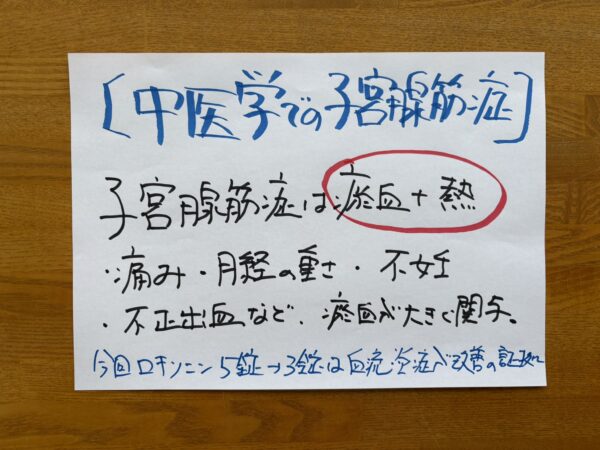 [中医学での子宮腺筋症]
子宮腺筋症は瘀血+熱
・痛み・月経の重さ・不妊
・不正出血など、瘀血が大きく関与。
今回ロキソニン5錠→3錠は血流、炎症が改善の証拠